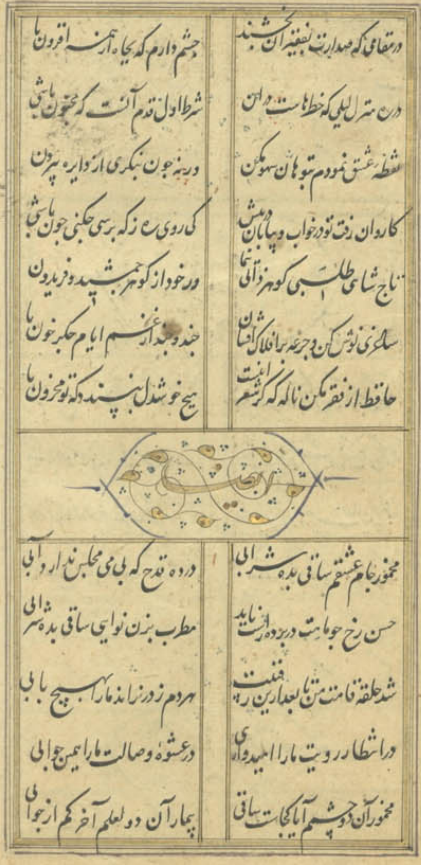 در مقامی که صدارت بفقیران بخشند چشم دارم که بجاه از همه افزون باشی
در ره منزل لیلی که خطرهاست در آن شرط اول قدم آنست که مجنون باشی
نقطه عشق نمودم بتو هان سهو مکن ورنه چون بنگری از دایره بیرون باشی
کاروان رفت تو در خواب و بیابان در پیش کی روی ره ز که پرسی چکنی چون باشی
تاج شاهی طلبی گوهر ذاتی بنما ور خود از گوهر جمشید و فریدون باشی
ساغری نوش کن و جرعه بر افلاک فشان چند و چند از غم ایام جگر خون باشی
حافظ از فقر مکن ناله که گر شعر اینست هیچ خوشدل نپسندد که تو محزون باشی
مخمور جام عشقم ساقی بده شرابی در ده قدح که بی می مجلس ندارد آبی
حسن رخ چو ماهت در پرده راست ناید مطرب بزن نوایی ساقی بده شرابی
شد حلقه قامت من تا بعد ازین رقیبت هر دم ز در نراند ما را بهیچ بابی
در انتظار رویت ما را امیدواری در عشوه وصالت ما را همین جوابی
مخمور آن دو چشمم آیا کجاست ساقی بیمار آن دو لعلم آخر کم از جوابی